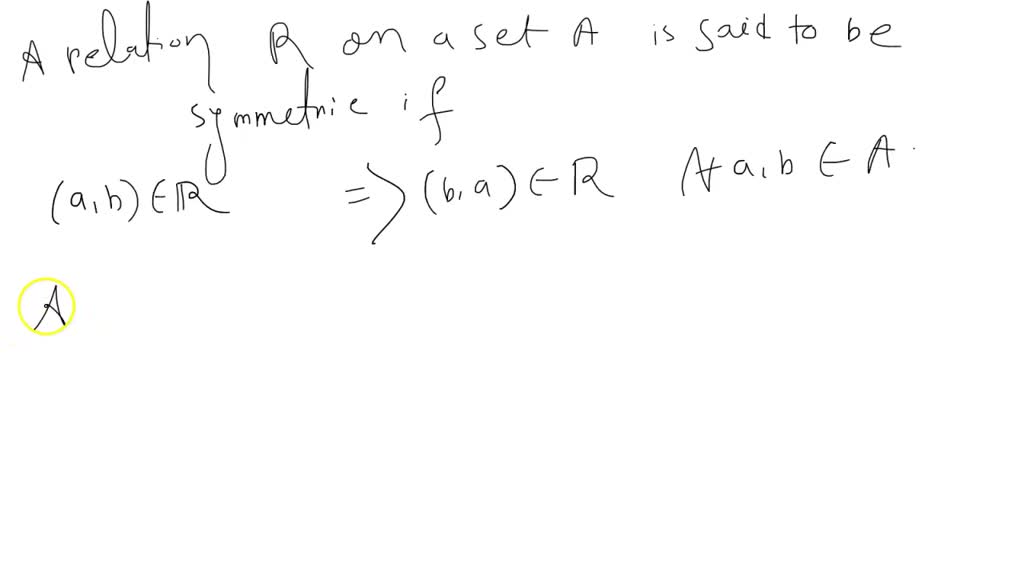 A relation R on a set A is said to be
symmetric if
(a,b) ∈ R => (b,a) ∈ R ∀ a,b ∈ A.
A